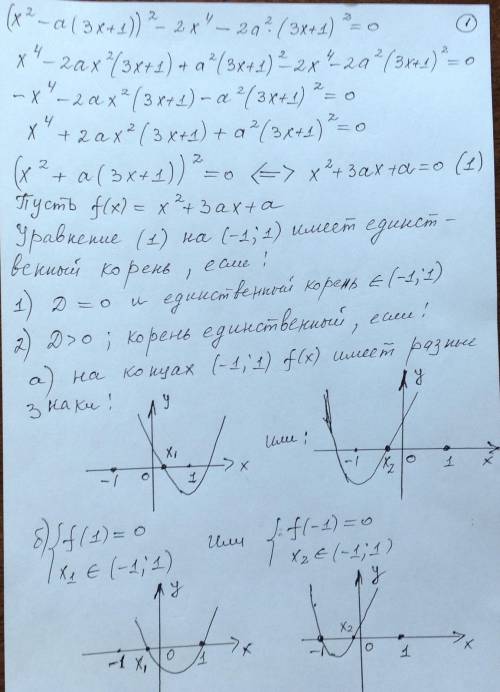 (x² - a(3x+1))² - 2x⁴ - 2a²·(3x+1)² = 0
①
x⁴ - 2ax²(3x+1) + a²(3x+1)² - 2x⁴ - 2a²(3x+1)² = 0
-x⁴ - 2ax²(3x+1) - a²(3x+1)² = 0
x⁴ + 2ax²(3x+1) + a²(3x+1)² = 0
(x² + a(3x+1))² = 0 <=> x² + 3ax + a = 0 (1)
Пусть f(x) = x² + 3ax + a
Уравнение (1) на (-1;1) имеет единст-
венный корень, если:
1) D = 0 и единственный корень ∈ (-1;1)
2) D>0; корень единственный, если:
а) на концах (-1;1) f(x) имеет разные
знаки:
y x₁ -1 0 1 x
или:
y -1 x₂ 0 1 x
б) { f(1) = 0
x₁ ∈ (-1;1)
или
{ f(-1) = 0
x₂ ∈ (-1;1)
y -1 x₁ 0 1 x
y x₂ -1 0 1 x